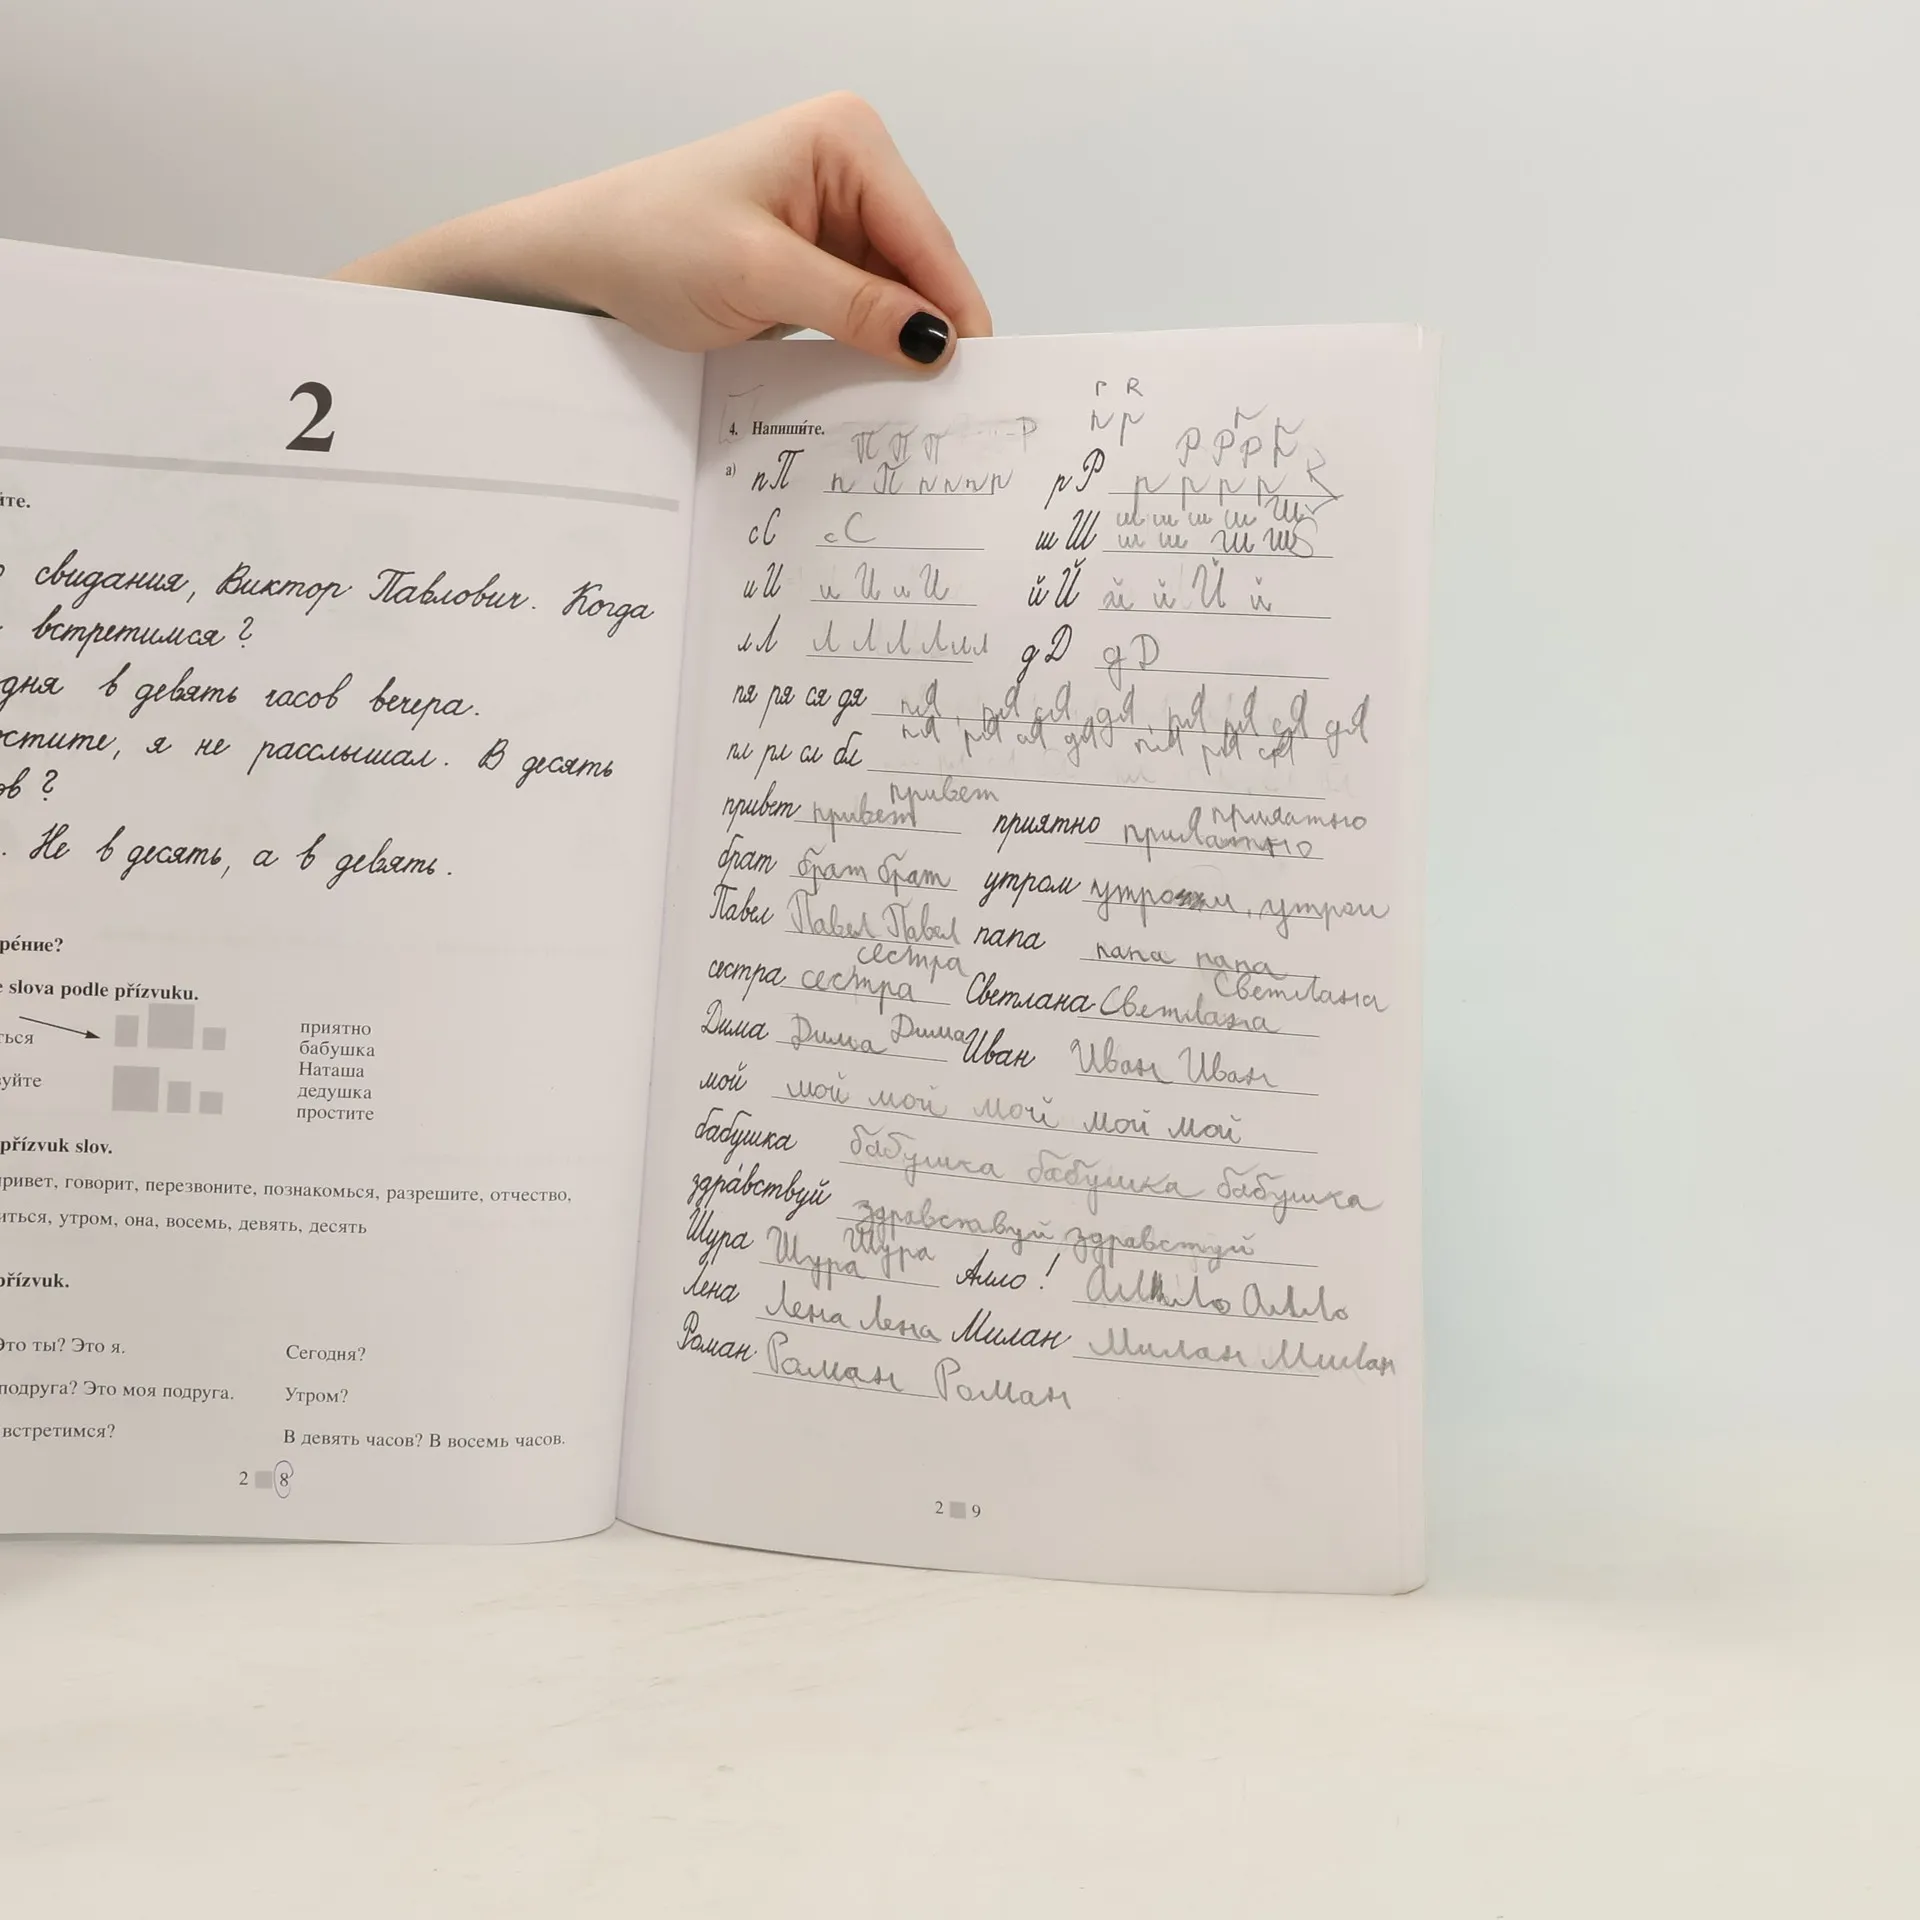 2
йте.
свидания, Виктор Павлович. Когда
встретимся?
дня в девять часов вечера.
стите, я не расслышал. В десять
ов?
. Не в десять, а в девять.
рéние?
e slova podle přízvuku.
ться
уйте
приятно
бабушка
Наташа
дедушка
простите
přízvuk slov.
ривет, говорит, перезвоните, познакомься, разрешите, отчество,
иться, утром, она, восемь, девять, десять
přízvuk.
Это ты? Это я.
Сегодня?
подруга? Это моя подруга.
Утром?
встретимся?
В девять часов? В восемь часов.
2 8
r R
п р
4. Напиши́те.
П П П Р
Р Р Р
а) п П п П п п п р р Р р р р р
ш ш ш ш Ш
с С с С ш Ш ш ш Ш Ш
и И и И и И й Й й й Й й
л Л Л Л Л Л л л д Д д Д
пя ря ся дя пя, ря ся дя, пя ря ся дя
пя ря ся дя пя ря ся
пл рл сл бл
привет
привет привет приятно приятно
приятно
брат брат брат утром утром, утром
Павел Павел Павел папа папа папа
сестра
сестра сестра Светлана Светлана
Светлана
Дима Дима Дима Иван Иван Иван
мой мой мой мой мой мой
бабушка бабушка бабушка бабушка
здрáвствуй здравствуй здравстуй
Шура Шура Шура Алло! Алло Алло
Лена Лена Лена Милан Милан Милан
Роман Роман Роман
2 9